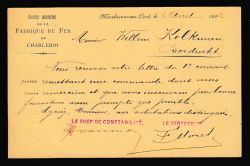 Société anonyme
DE LA
FABRIQUE DE FER
DE
CHARLEROI
Marchienne-au-Pont, le 2 Avril
Monsieur Willem Kolkman
Dordrecht
Nous reçumes votre lettre du 1er courant
nous remettant une commande dont nous
vous remercions et que nous inscrivons par bonne
fourniture aussi prompte que possible.
Agréez, Monsieur, nos salutations distinguées.
LE CHEF DE COMPTABILITÉ,
LE DIRECTEUR